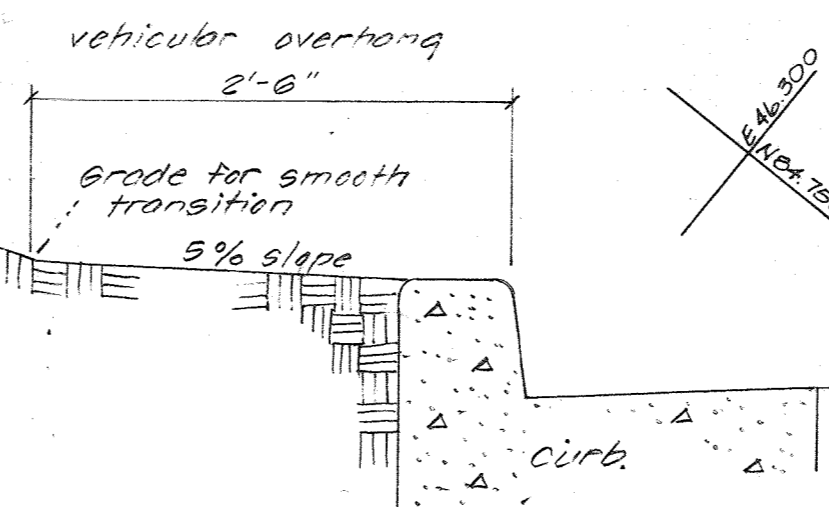 vehicular overhang
2'-6"
Grade for smooth
transition
5% slope
curb.
E 46.300